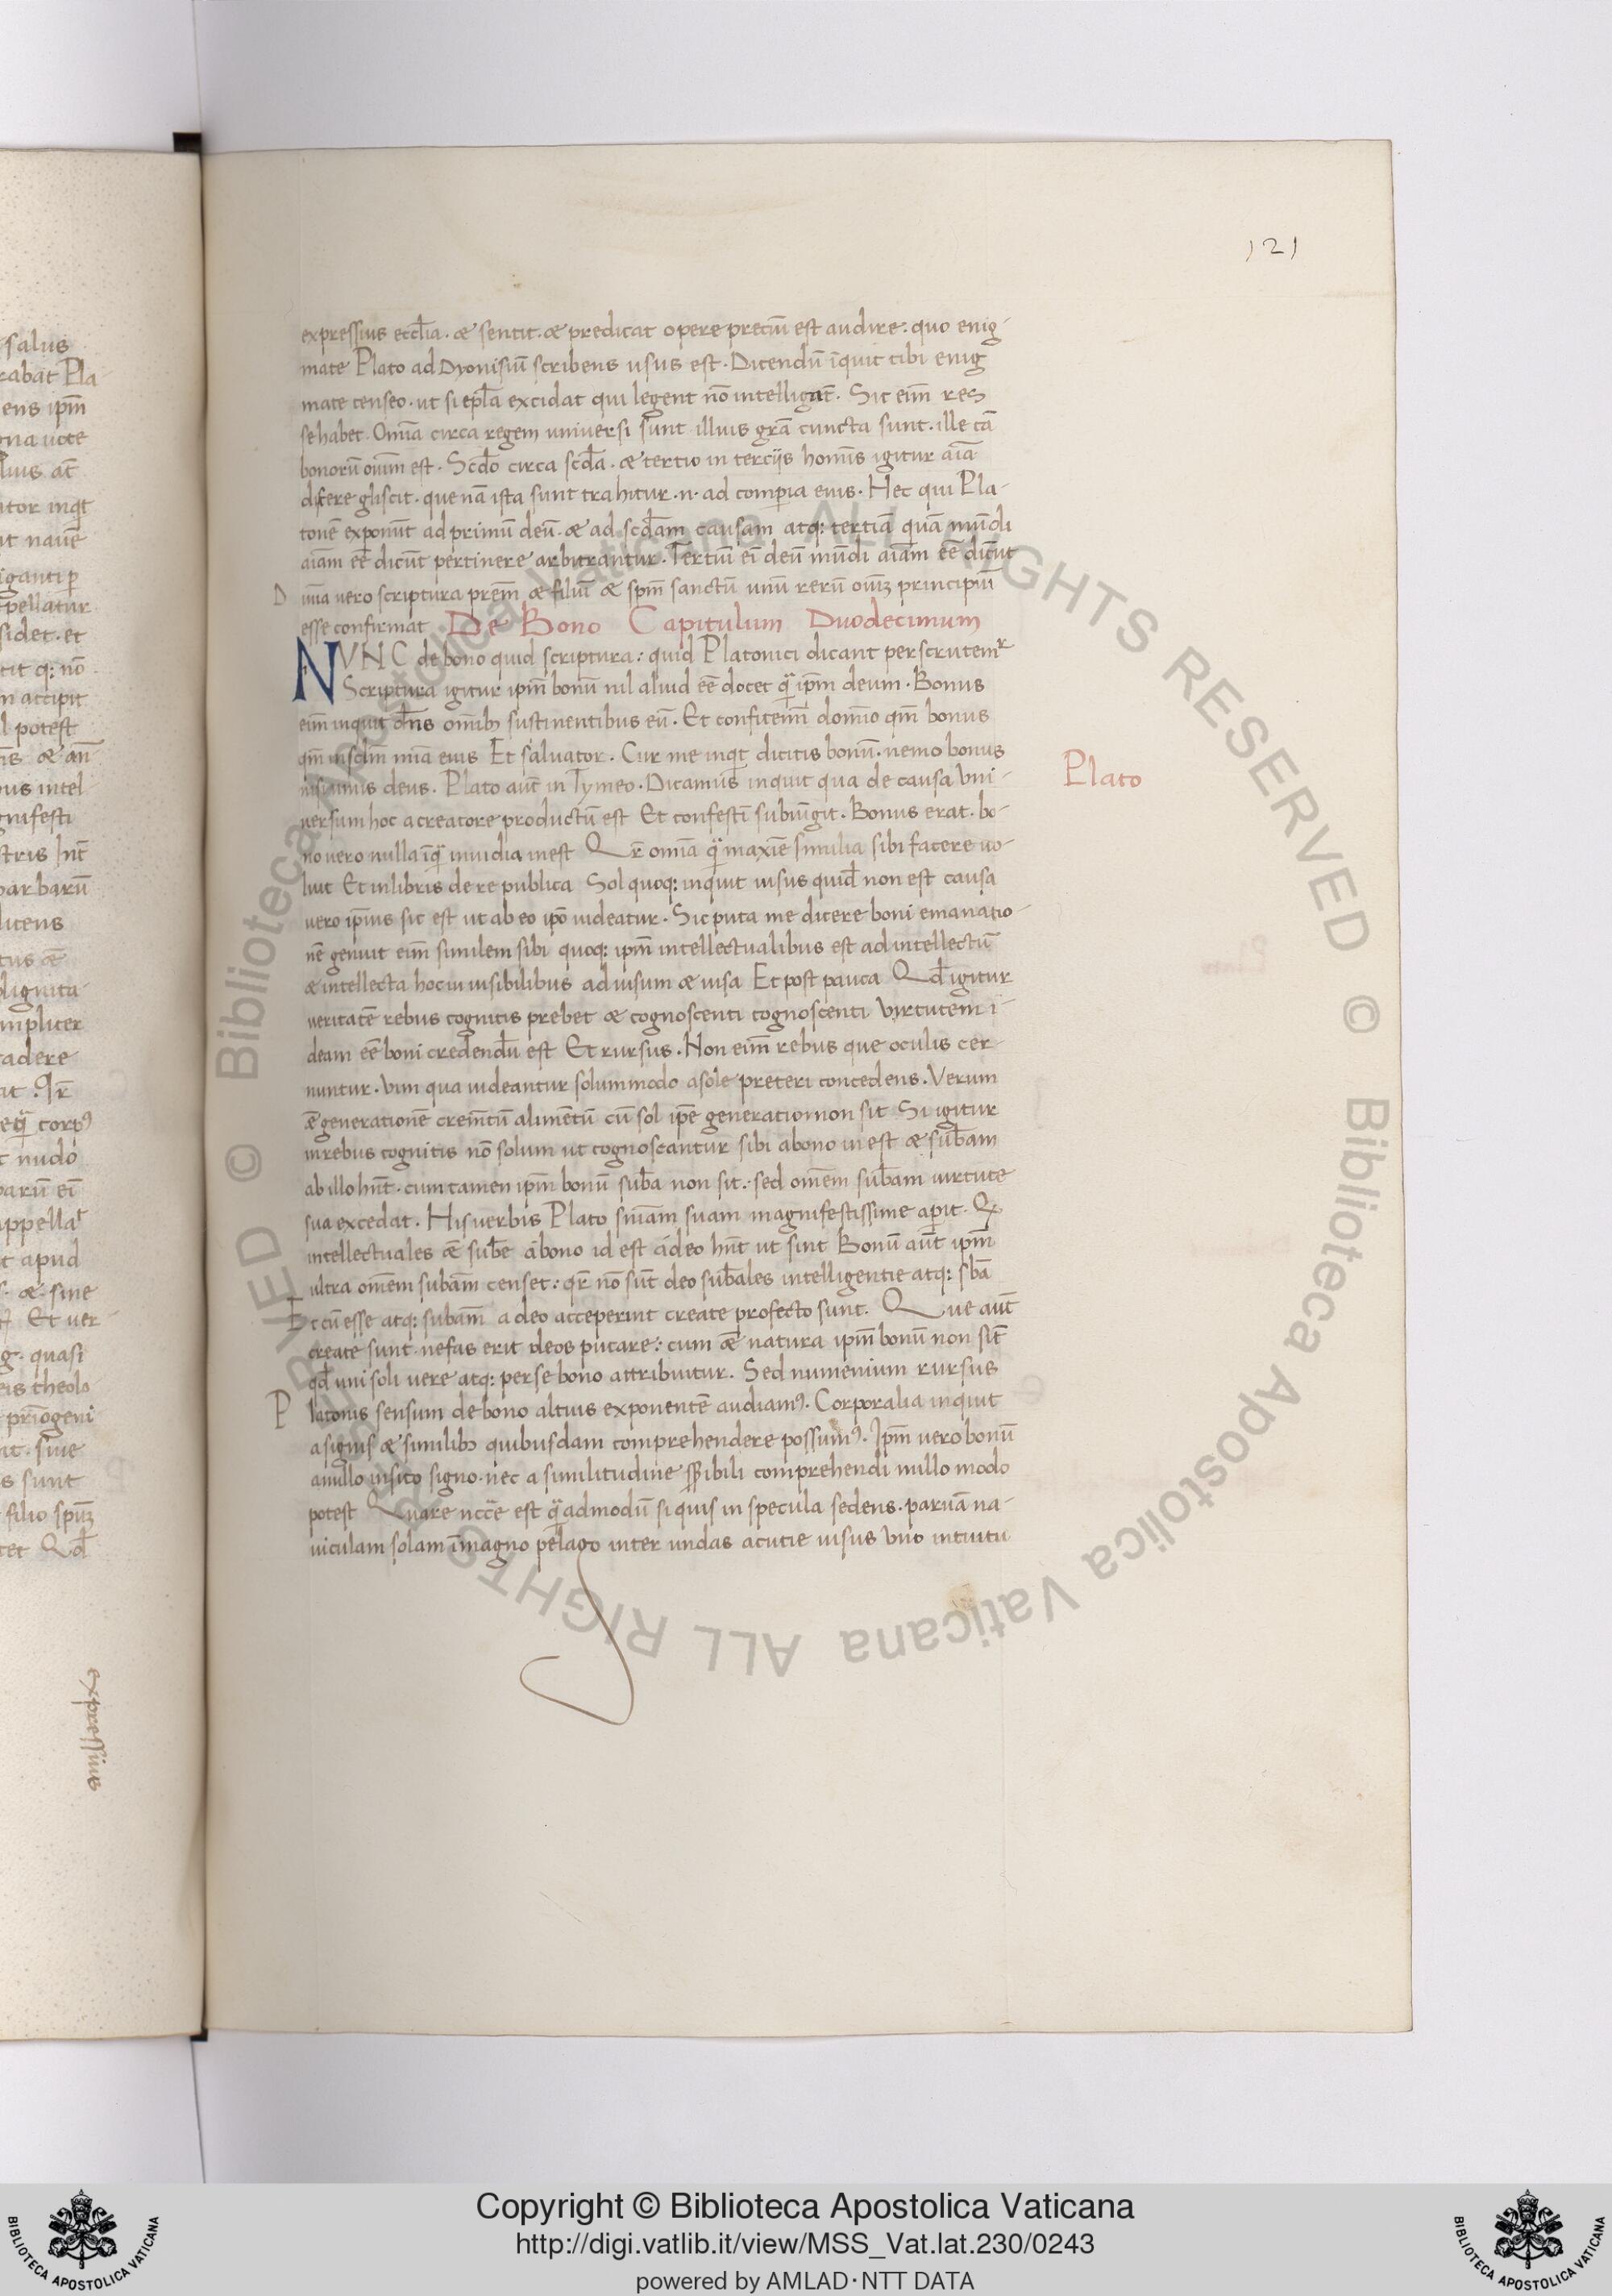 121
expressius eccl̄ia. & sentit. & predicat opere preciū est audire: quo enig-
mate Plato ad Dyonisiū scribens usus est. Dicendū īquit tibi enig
mate censeo. ut si epl̄a excidat qui legent nō intelligāt. Sic eīm res
se habet. Om̄ia circa regem universi sunt illius grā cuncta sunt. ille cā
bonorū oīum est. Scd̄o circa scd̄a. & tertio in terciis homīs igitur aīa
discere gliscit. que nā ista sunt trahitur .n. ad comperia eius. Hec qui Pla-
tonē exponūt ad primū deū. & ad scd̄am causam atq: tertiā quā mūdi
aīam eē dicūt pertinere arbitrantur. Tertiū eī deū mūdi aīam eē dicūt
D
iuia vero scriptura prēm & filiū & spm̄ sanctū unū rerū oīuʒ principiū
esse confirmat De Bono Capitulum Duodecimum
NVNC de bono quid scriptura: quid Platonici dicant perscrutemʳ
Scriptura igitur ipm̄ bonū nil aliud eē docet q̄ ipm̄ deum. Bonus
eīm inquit dn̄s omībʒ sustinentibus eū. Et confitemī domīo qm̄ bonus
qm̄ insclm̄ mīa eius Et salvator. Cur me inqt̄ dicitis bonū. nemo bonus
nisi unus deus. Plato aūt in Tymeo. Dicamus inquit qua de causa vni-
Plato
versum hoc a creatore productū est Et confestī subiūgit. Bonus erat. bo-
no vero nulla īq̄ invidia inest Qr̄ omīa q̄ maxīe similia sibi facere vo-
luit Et in libris de re publica Sol quoq: inquit visus quid̄ non est causa
vero ipīus sic est ut ab eo ipō videatur. Sic puta me dicere boni emanatio-
nē genuit eīm similem sibi quoq: ipm̄ intellectualibus est ad intellectū
& intellecta hoc in visibilibus ad visum & visa Et post pauca Qd̄ igitur
veritatē rebus cognitis prebet & cognoscenti cognoscenti virtutem i-
deam eē boni credendū est Et rursus. Non eīm rebus que oculis cer-
nuntur. vim qua videantur solummodo a sole preteri concedens. Verum
& generationē cremtū alimētū cū sol ipē generatio non sit Si igitur
in rebus cognitis nō solum ut cognoscantur sibi a bono in est & subam̄
ab illo hn̄t. cum tamen ipm̄ bonū suba̅ non sit. sed omēm subam̄ virtute
sua excedat. His verbis Plato snīam suam magnifestissime apīt. Qꝫ
intellectuales & sube̅ a bono id est a deo hn̄t ut sint Bonū aūt ipm̄
ultra omēm subam̄ censet: qr̄ nō sūt deo subales̄ intelligentie atq: sbā
Et cū esse atq: subam̄ a deo acceperint create profecto sunt. Que aūt
create sunt. nefas erit deos putare: cum & natura ipm̄ bonū non sīt
qd̄ uni soli vere atq: per se bono attribuitur. Sed numenium rursus
P
latonis sensum de bono altius exponentē audiam⁹. Corporalia inquit
a signis & similibʒ quibusdam comprehendere possum⁹. Ipm̄ vero bonū
a nullo insito signo. nec a similitudine sēsibili comprehendi nullo modo
potest Quare nccē est q̄admodū si quis in specula sedens. parvā na-
viculam solam ī magno pelago inter undas acutie visus vno intuitu
salus
expressius
Copyright © Biblioteca Apostolica Vaticana
http://digi.vatlib.it/view/MSS_Vat.lat.230/0243
powered by AMLAD·NTT DATA
BIBLIOTECA APOSTOLICA VATICANA
BIBLIOTECA APOSTOLICA VATICANA
© Biblioteca Apostolica Vaticana ALL RIGHTS RESERVED
© Biblioteca Apostolica Vaticana ALL RIGHTS RESERVED